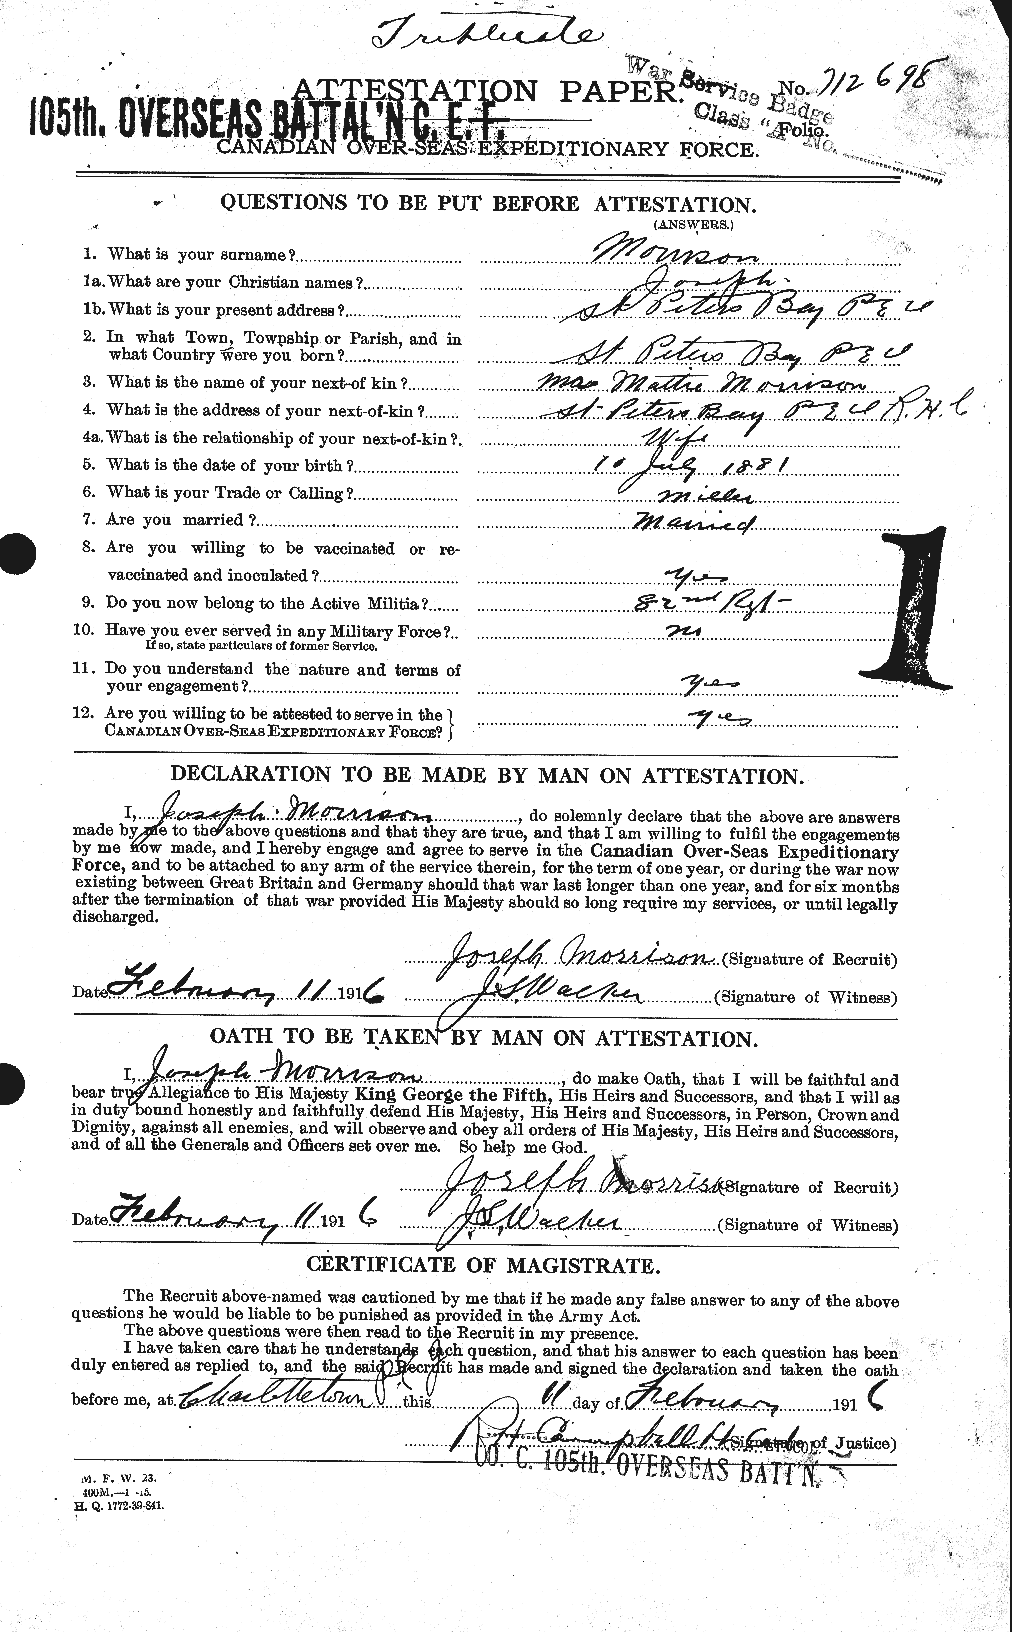 Triplicate
ATTESTATION PAPER. No. 712698
War Service Badge
Class "A" No.
Folio.
105th. OVERSEAS BATTAL'N C. E. F.
CANADIAN OVER-SEAS EXPEDITIONARY FORCE.
QUESTIONS TO BE PUT BEFORE ATTESTATION.
(ANSWERS.)
1. What is your surname? Morrison
1a. What are your Christian names? Joseph
1b. What is your present address? St Peters Bay P E I
2. In what Town, Township or Parish, and in
what Country were you born? St Peters Bay P E I
3. What is the name of your next-of kin? Mrs Mattie Morrison
4. What is the address of your next-of-kin? St Peters Bay P E I R.H.C
4a. What is the relationship of your next-of-kin? Wife
5. What is the date of your birth? 10 July 1881
6. What is your Trade or Calling? Miller
7. Are you married? Married
8. Are you willing to be vaccinated or re-
vaccinated and inoculated? Yes
9. Do you now belong to the Active Militia? 82nd Rgt
10. Have you ever served in any Military Force? no
If so, state particulars of former Service.
11. Do you understand the nature and terms of
your engagement? yes
12. Are you willing to be attested to serve in the
CANADIAN OVER-SEAS EXPEDITIONARY FORCE? yes
1
DECLARATION TO BE MADE BY MAN ON ATTESTATION.
I, Joseph Morrison, do solemnly declare that the above are answers
made by me to the above questions and that they are true, and that I am willing to fulfil the engagements
by me now made, and I hereby engage and agree to serve in the Canadian Over-Seas Expeditionary
Force, and to be attached to any arm of the service therein, for the term of one year, or during the war now
existing between Great Britain and Germany should that war last longer than one year, and for six months
after the termination of that war provided His Majesty should so long require my services, or until legally
discharged.
Joseph Morrison (Signature of Recruit)
Date February 11 1916 J.S. Walker (Signature of Witness)
OATH TO BE TAKEN BY MAN ON ATTESTATION.
I, Joseph Morrison, do make Oath, that I will be faithful and
bear true Allegiance to His Majesty King George the Fifth, His Heirs and Successors, and that I will as
in duty bound honestly and faithfully defend His Majesty, His Heirs and Successors, in Person, Crown and
Dignity, against all enemies, and will observe and obey all orders of His Majesty, His Heirs and Successors,
and of all the Generals and Officers set over me. So help me God.
Joseph Morrison (Signature of Recruit)
Date February 11 1916 J.S. Walker (Signature of Witness)
CERTIFICATE OF MAGISTRATE.
The Recruit above-named was cautioned by me that if he made any false answer to any of the above
questions he would be liable to be punished as provided in the Army Act.
The above questions were then read to the Recruit in my presence.
I have taken care that he understands each question, and that his answer to each question has been
duly entered as replied to, and the said Recruit has made and signed the declaration and taken the oath
before me, at Charlottetown this 11 day of February 1916
(Signature of Justice)
O. C. 105th. OVERSEAS BATT'N.
M. F. W. 23.
400M.—1-15.
H. Q. 1772-39-841.